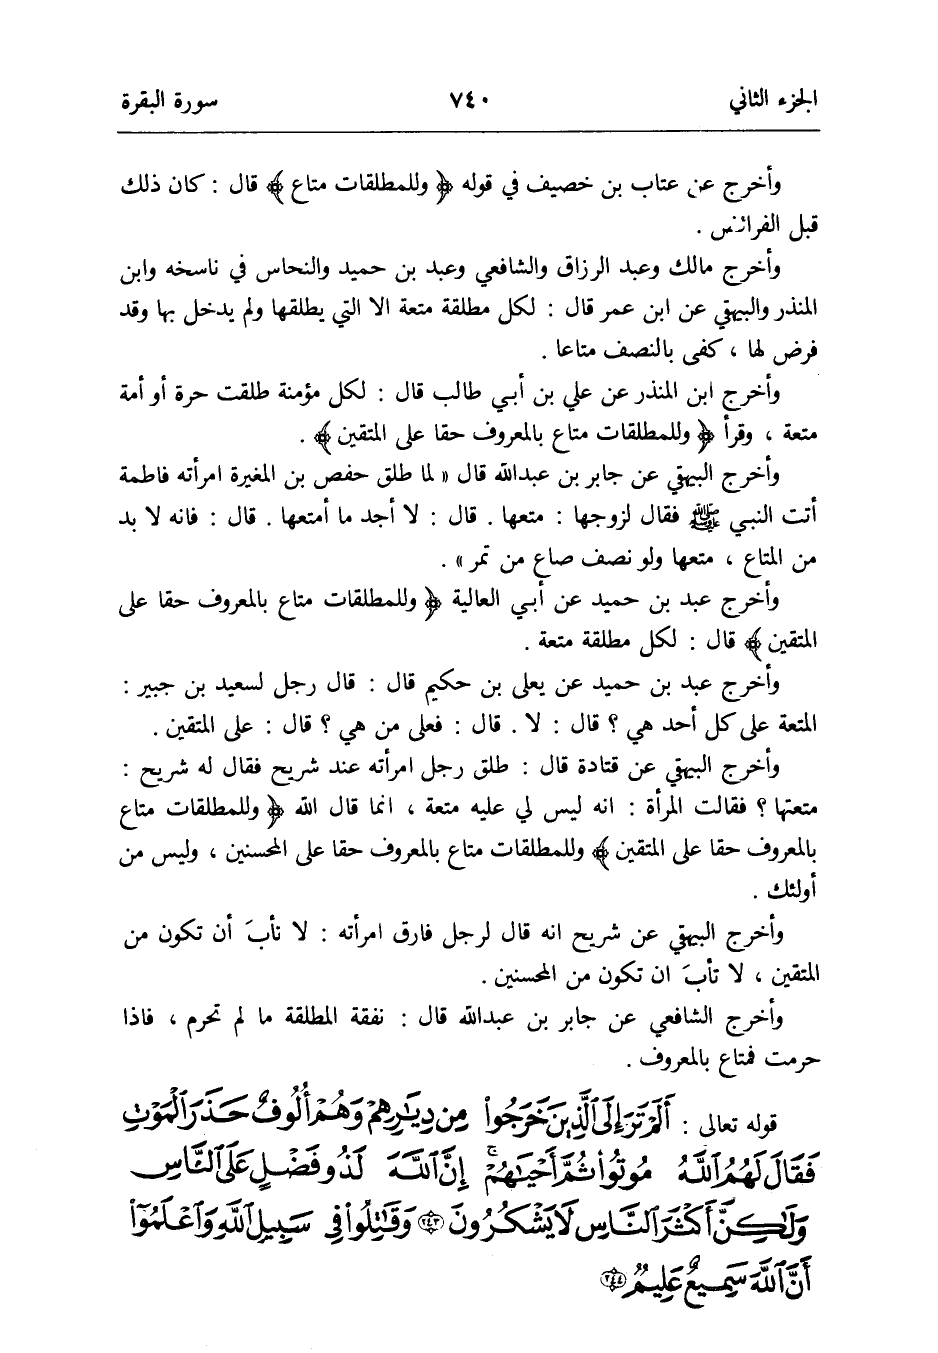 الجزء الثاني ٧٤٠ سورة البقرة
وأخرج عن عتاب بن خصيف في قوله ﴿ وللمطلقات متاع ﴾ قال : كان ذلك
قبل الفرائض .
وأخرج مالك وعبد الرزاق والشافعي وعبد بن حميد والنحاس في ناسخه وابن
المنذر والبيهقي عن ابن عمر قال : لكل مطلقة متعة الا التي يطلقها ولم يدخل بها وقد
فرض لها ، كفى بالنصف متاعا .
وأخرج ابن المنذر عن علي بن أبي طالب قال : لكل مؤمنة طلقت حرة أو أمة
متعة ، وقرأ ﴿ وللمطلقات متاع بالمعروف حقا على المتقين ﴾ .
وأخرج البيهقي عن جابر بن عبدالله قال « لما طلق حفص بن المغيرة امرأته فاطمة
أتت النبي ﷺ فقال لزوجها : متعها . قال : لا أجد ما أمتعها . قال : فانه لا بد
من المتاع ، متعها ولو نصف صاع من تمر » .
وأخرج عبد بن حميد عن أبي العالية ﴿ وللمطلقات متاع بالمعروف حقا على
المتقين ﴾ قال : لكل مطلقة متعة .
وأخرج عبد بن حميد عن يعلى بن حكيم قال : قال رجل لسعيد بن جبير :
المتعة على كل أحد هي ؟ قال : لا . قال : فعلى من هي ؟ قال : على المتقين .
وأخرج البيهقي عن قتادة قال : طلق رجل امرأته عند شريح فقال له شريح :
متعتها ؟ فقالت المرأة : انه ليس لي عليه متعة ، انما قال الله ﴿ وللمطلقات متاع
بالمعروف حقا على المتقين ﴾ وللمطلقات متاع بالمعروف حقا على المحسنين ، وليس من
أولئك .
وأخرج البيهقي عن شريح انه قال لرجل فارق امرأته : لا تأبَ أن تكون من
المتقين ، لا تأبَ ان تكون من المحسنين .
وأخرج الشافعي عن جابر بن عبدالله قال : نفقة المطلقة ما لم تحرم ، فاذا
حرمت فمتاع بالمعروف .
قوله تعالى : أَلَمْ تَرَ إِلَى ٱلَّذِينَ خَرَجُوا۟ مِن دِيَٰرِهِمْ وَهُمْ أُلُوفٌ حَذَرَ ٱلْمَوْتِ
فَقَالَ لَهُمُ ٱللَّهُ مُوتُوا۟ ثُمَّ أَحْيَٰهُمْ ۚ إِنَّ ٱللَّهَ لَذُو فَضْلٍ عَلَى ٱلنَّاسِ
وَلَٰكِنَّ أَكْثَرَ ٱلنَّاسِ لَا يَشْكُرُونَ ٢٤٣ وَقَٰتِلُوا۟ فِى سَبِيلِ ٱللَّهِ وَٱعْلَمُوٓا۟
أَنَّ ٱللَّهَ سَمِيعٌ عَلِيمٌ ٢٤٤